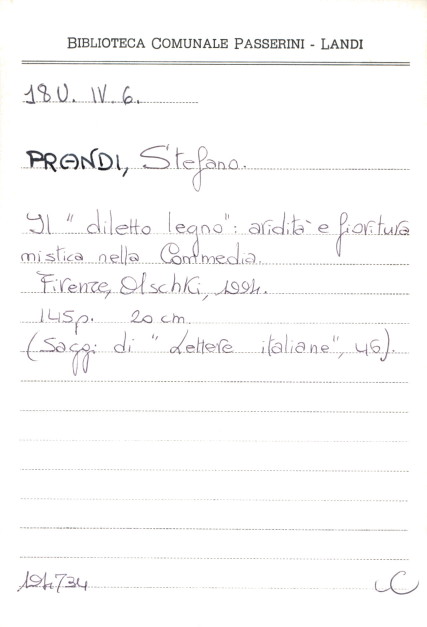 BIBLIOTECA COMUNALE PASSERINI - LANDI
18U. IV. 6.
PRANDI, Stefano.
Il " diletto legno": aridità e fioritura
mistica nella Commedia.
Firenze, Olschki, 1994.
145p. 20 cm.
(Saggi di " Lettere italiane", 46).
194734